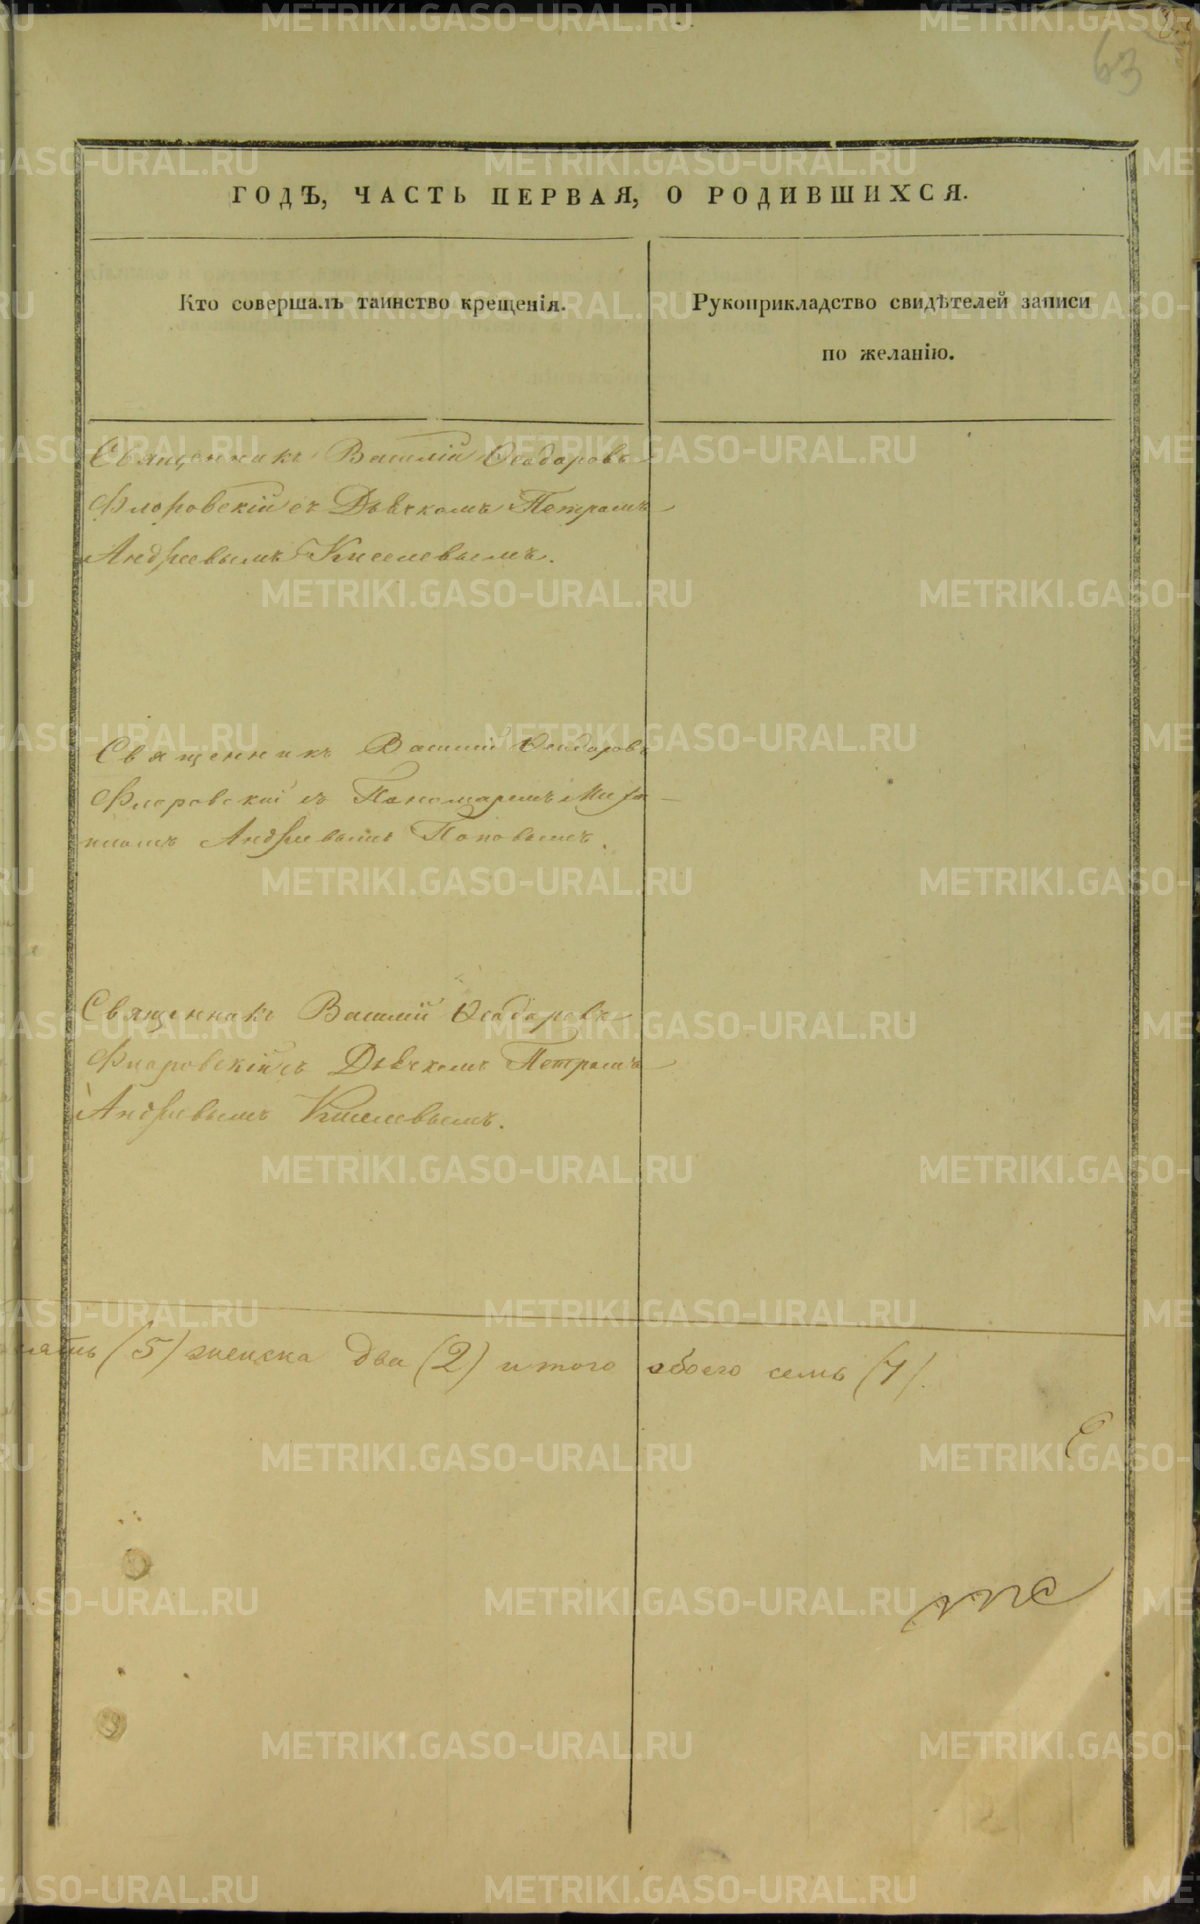 63
ГОДЪ, ЧАСТЬ ПЕРВАЯ, О РОДИВШИХСЯ.
Кто совершалъ таинство крещенія.
Рукоприкладство свидѣтелей записи
по желанію.
Священникъ Василій Ѳеодоровъ
Флоровскій съ Дьячкомъ Петромъ
Андреевымъ Киселевымъ.
Священникъ Василій Ѳеодоровъ
Флоровскій съ Пономаремъ
Андреевымъ Поповымъ.
Священникъ Василій Ѳеодоровъ
Флоровскій съ Дьячкомъ Петромъ
Андреевымъ Киселевымъ.
пять (5) женска два (2) итого обоего семь (7).
METRIKI.GASO-URAL.RU